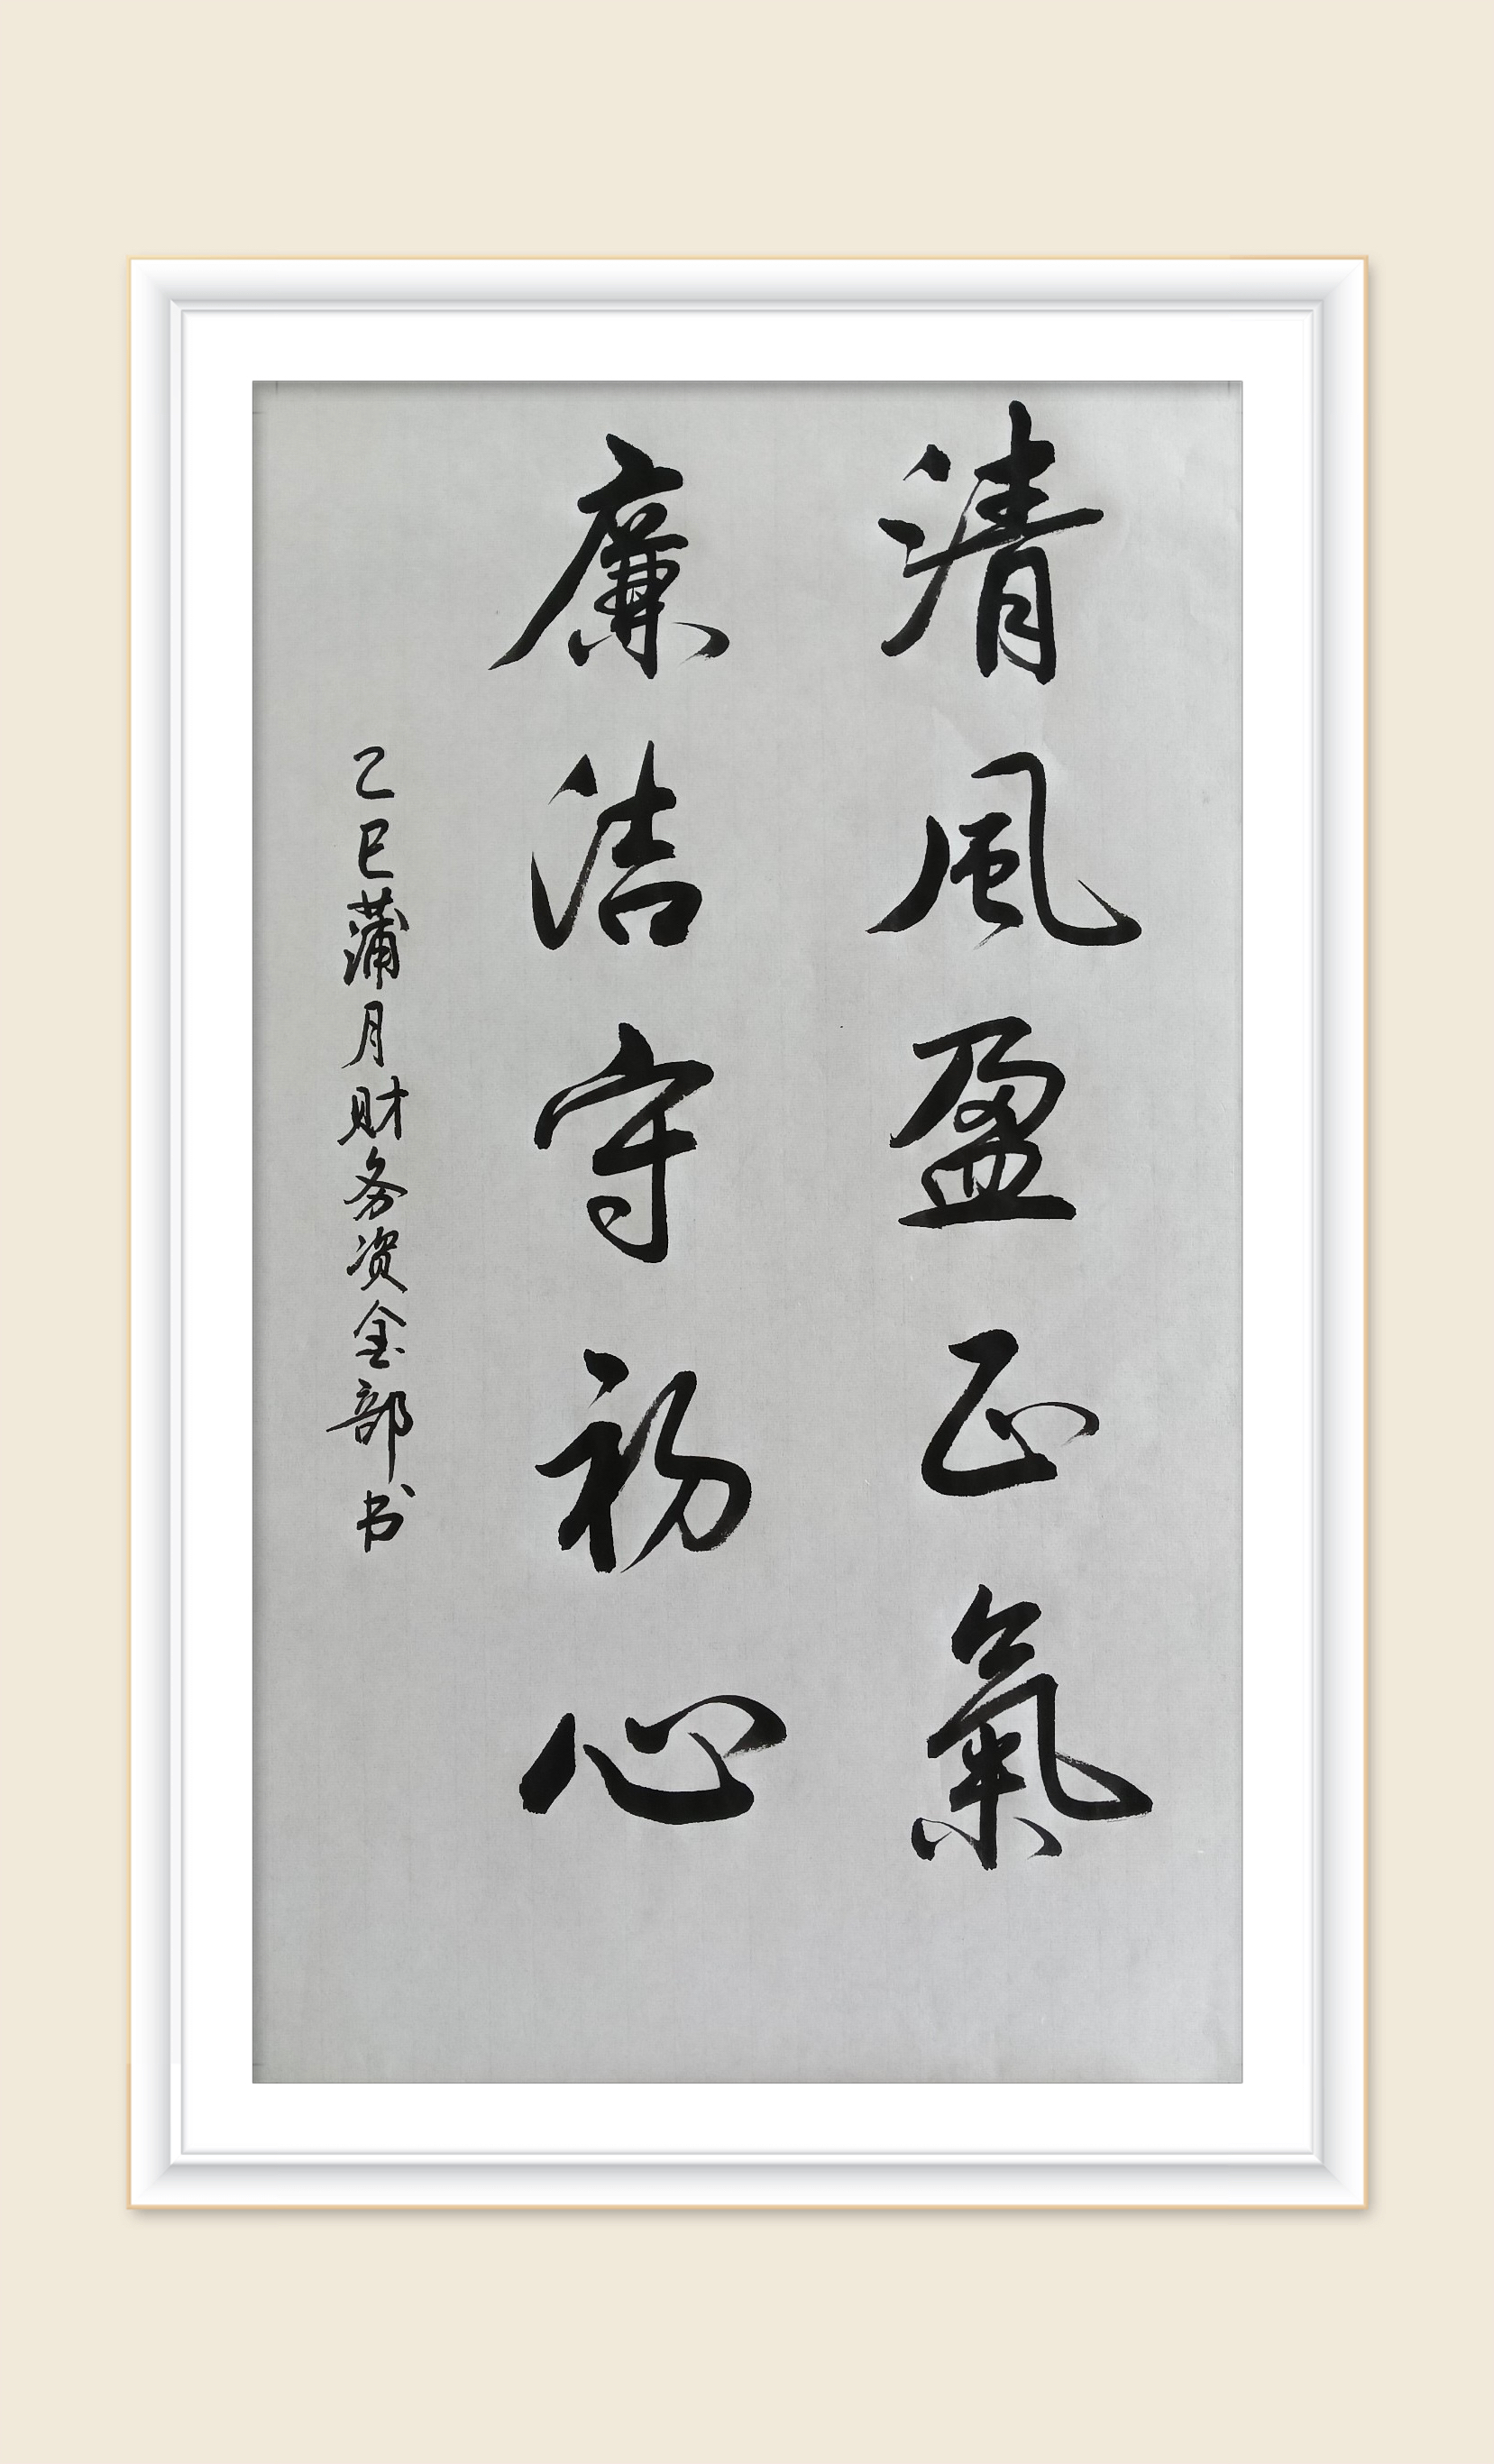 清風盈正氣
廉洁守初心
乙巳蒲月财务资金部书